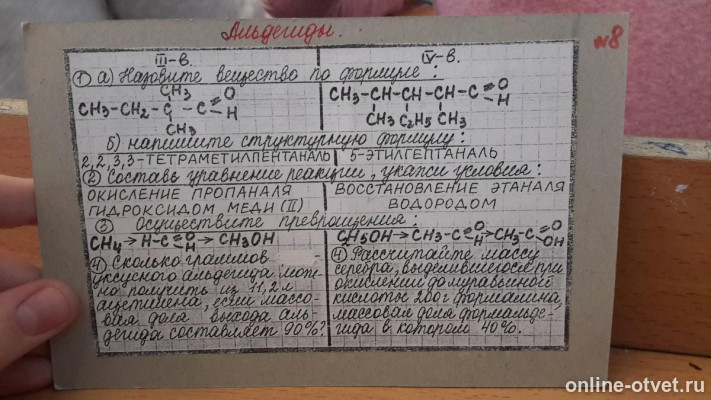 Альдегиды.
№8
III-в.
IV-в.
① а) Назовите вещество по формуле:
CH₃
CH₃-CH₂-C-C=O
H
CH₃
CH₃-CH-CH-CH-C=O
H
CH₃ C₂H₅ CH₃
б) напишите структурную формулу:
2,2,3,3-ТЕТРАМЕТИЛПЕНТАНАЛЬ
5-ЭТИЛГЕПТАНАЛЬ
② Составь уравнение реакции, укажи условия:
ОКИСЛЕНИЕ ПРОПАНАЛЯ
ГИДРОКСИДОМ МЕДИ (II)
ВОССТАНОВЛЕНИЕ ЭТАНАЛЯ
ВОДОРОДОМ
③ Осуществите превращения:
CH₄→H-C=O H→CH₃OH
C₂H₅OH→CH₃-C=O H→CH₃-C=O OH
④ Сколько граммов
уксусного альдегида мож-
но получить из 11,2 л
ацетилена, если массо-
вая доля выхода аль-
дегида составляет 90%?
④ Рассчитайте массу
серебра, выделившегося при
окислении до муравьиной
кислоты 200г формалина
массовая доля формальде-
гида в котором 40%.
online-otvet.ru